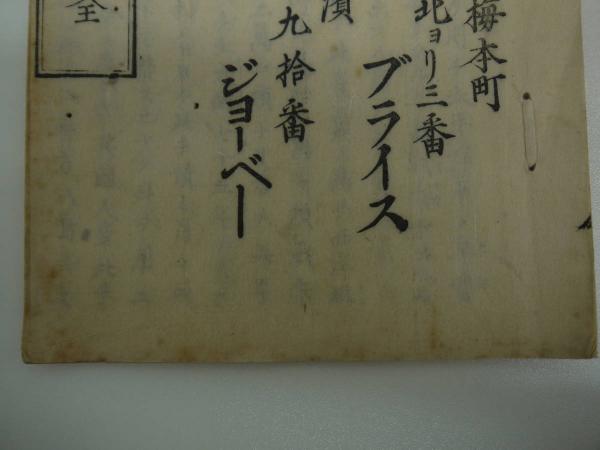 梅本町
北ョリ三番
ブライス
濱
九拾番
ジヨーベー
全